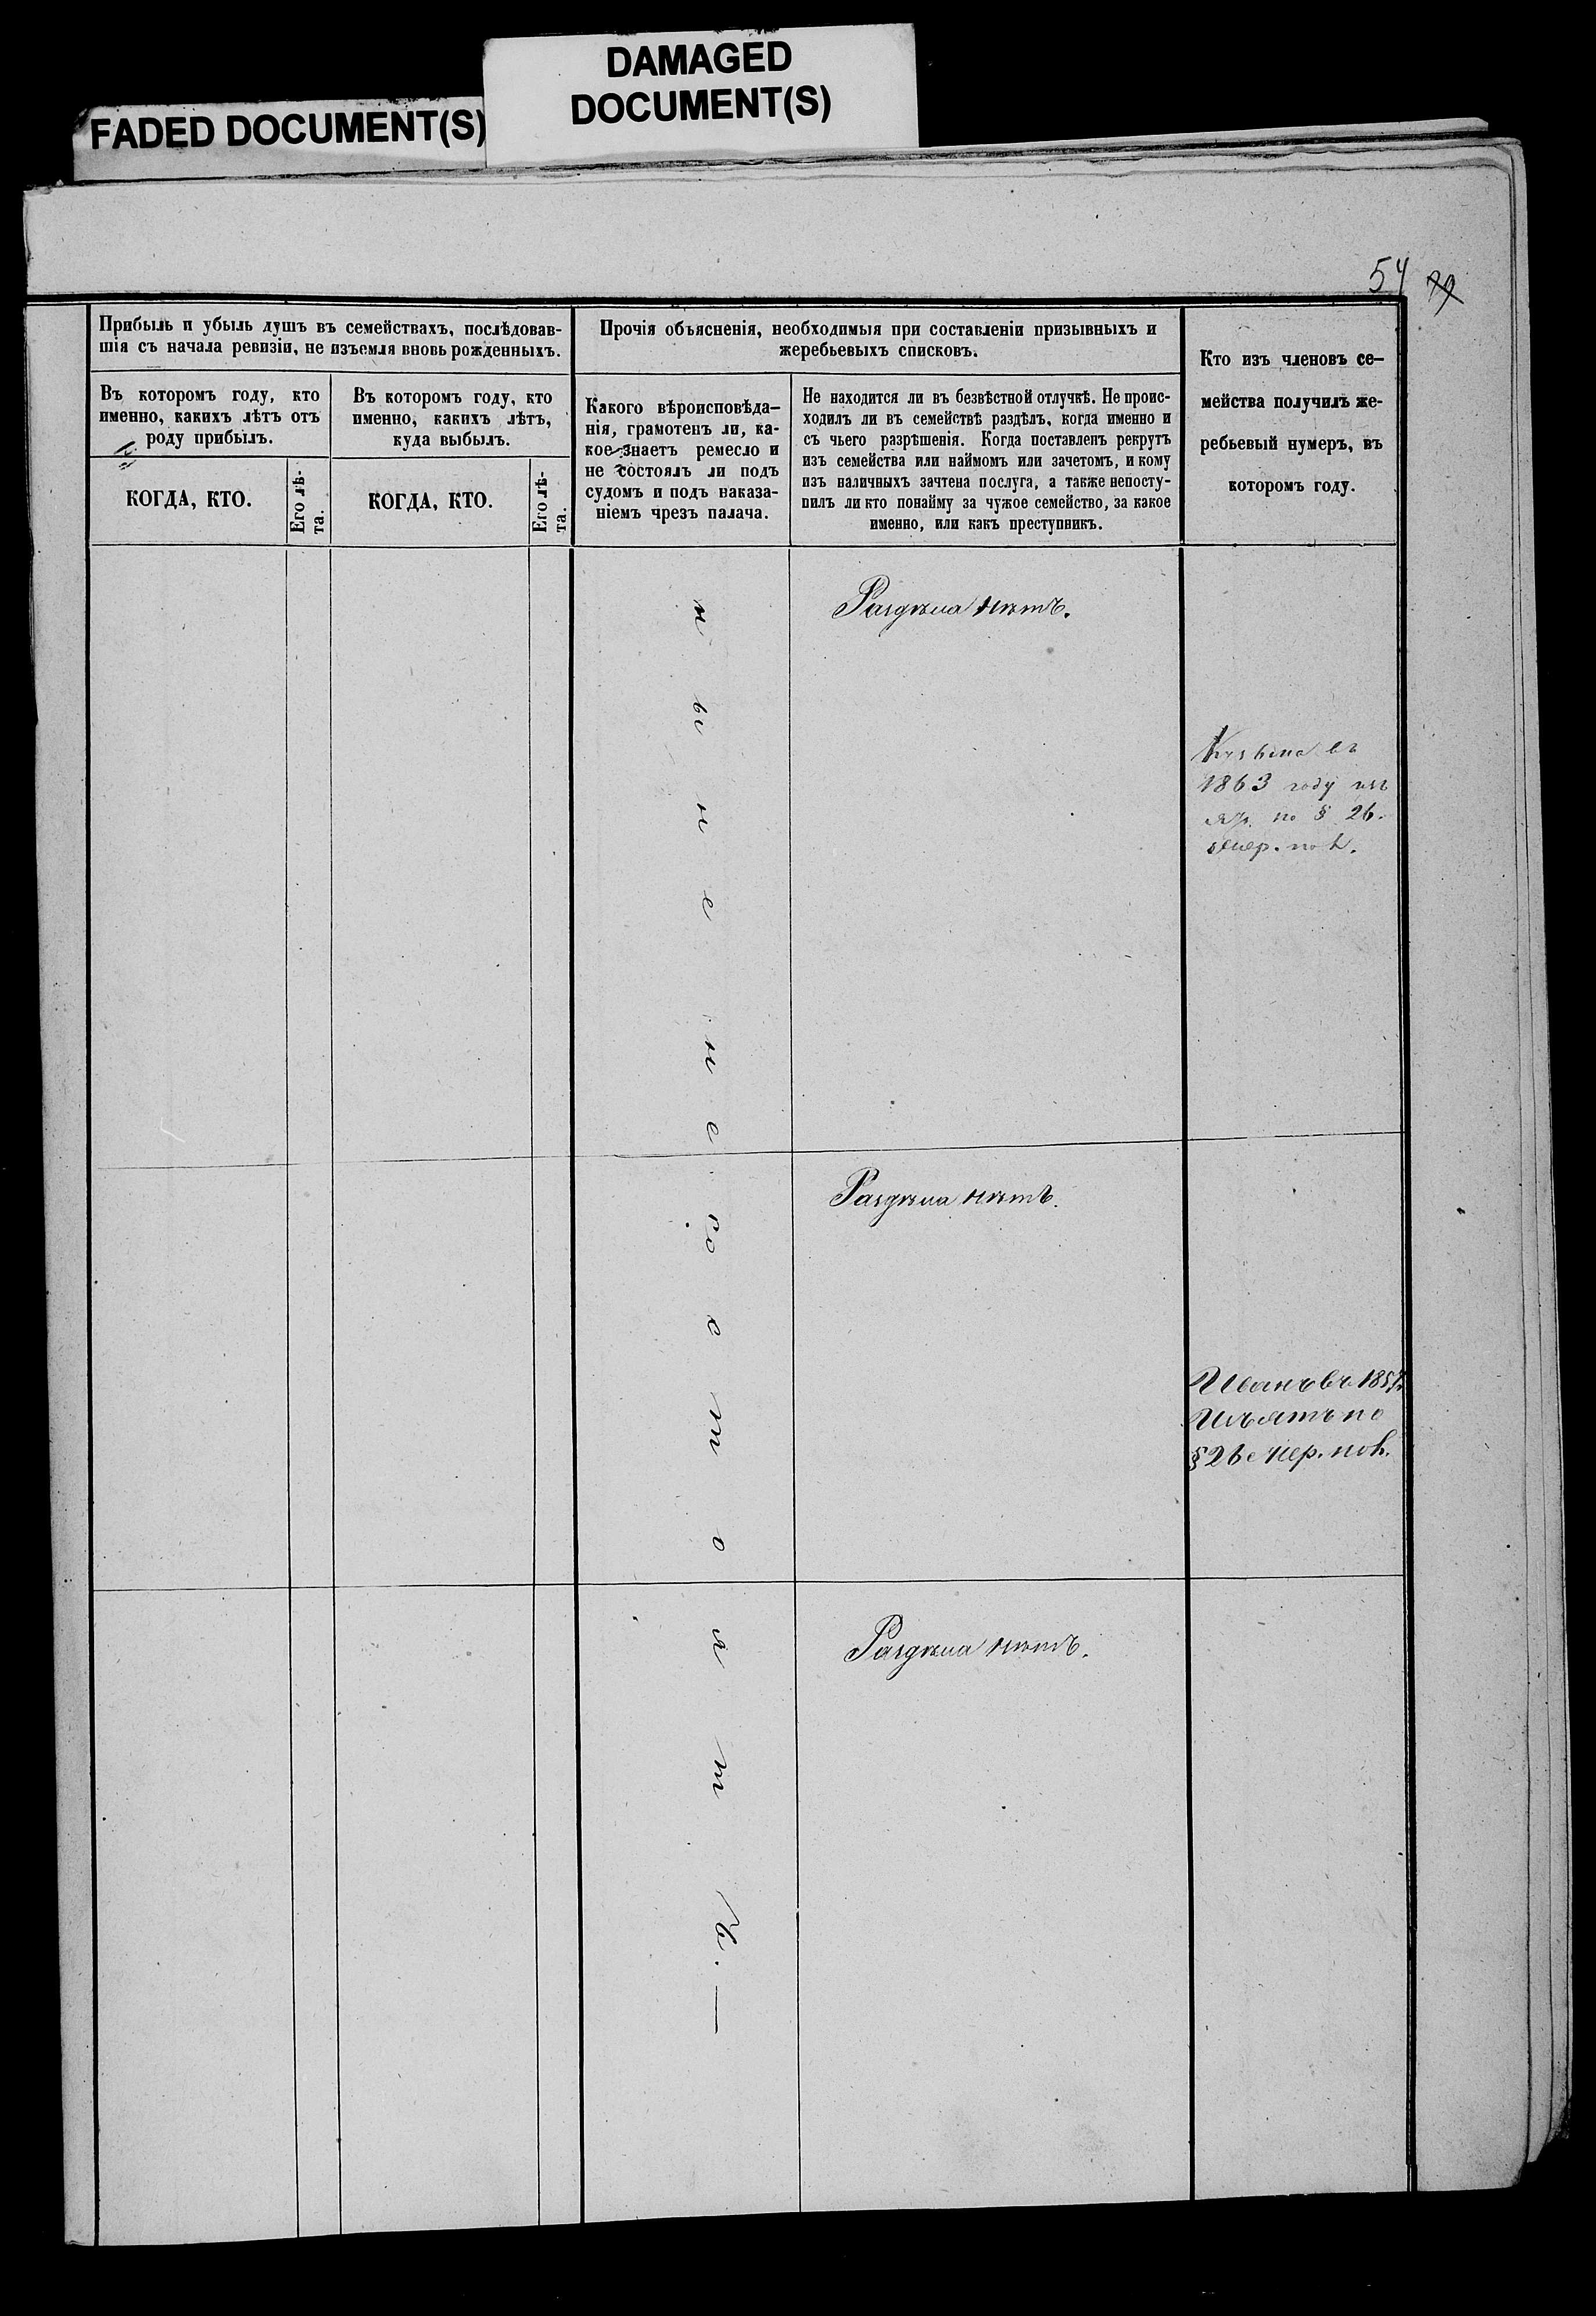 DAMAGED
DOCUMENT(S)
FADED DOCUMENT(S)
54
Прибыль и убыль душъ въ семействахъ, послѣдовав-
шія съ начала ревизіи, не изъемля вновь рожденныхъ.
Въ которомъ году, кто
именно, какихъ лѣтъ отъ
роду прибылъ.
КОГДА, КТО.
Его лѣ-
та.
Въ которомъ году, кто
именно, какихъ лѣтъ,
куда выбылъ.
КОГДА, КТО.
Его лѣ-
та.
Прочія объясненія, необходимыя при составленіи призывныхъ и
жеребьевыхъ списковъ.
Какого вѣроисповѣда-
нія, грамотенъ ли, ка-
кое знаетъ ремесло и
не состоялъ ли подъ
судомъ и подъ наказа-
ніемъ чрезъ палача.
Не находится ли въ безвѣстной отлучкѣ. Не проис-
ходилъ ли въ семействѣ раздѣлъ, когда именно и
съ чьего разрѣшенія. Когда поставленъ рекрутъ
изъ семейства или наймомъ или зачетомъ, и кому
изъ наличныхъ зачтена послуга, а также непосту-
пилъ ли кто понайму за чужое семейство, за какое
именно, или какъ преступникъ.
Кто изъ членовъ се-
мейства получилъ же-
ребьевый нумеръ, въ
которомъ году.
Раздѣла нѣтъ.
1863 году изъ
по § 26.
н ы н е н е с о с т о я т ъ. —
Раздѣла нѣтъ.
Иванъ въ
по
§ 26
Раздѣла нѣтъ.